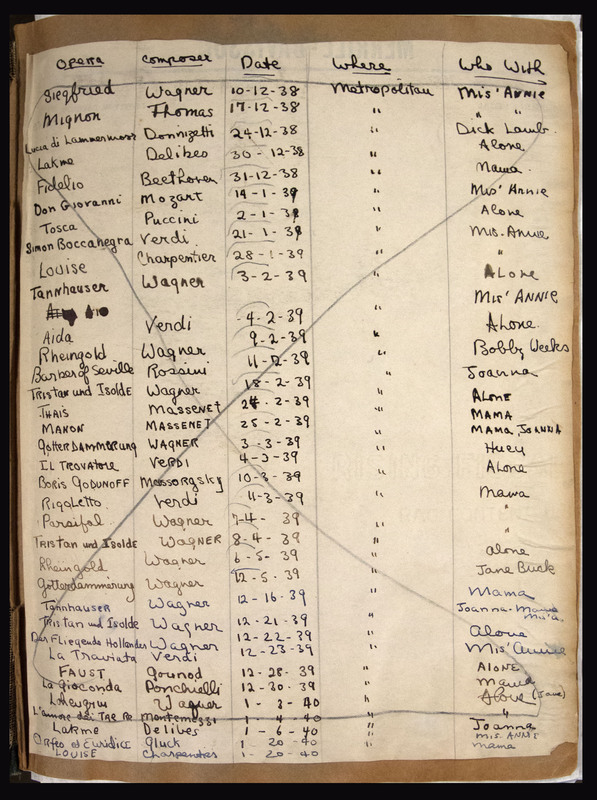 Opera Composer Date Where Who With
Siegfried Wagner 10-12-38 Metropolitan Mis' Annie
Mignon Thomas 17-12-38 " " "
Lucia di Lammermoor Donnizetti 24-12-38 " Dick Lamb.
Lakme Delibes 30-12-38 " Alone
Fidelio Beethoven 31-12-38 " Mama.
Don Giovanni Mozart 14-1-39 " Mis' Annie
Tosca Puccini 2-1-39 " Alone
Simon Boccanegra Verdi 21-1-39 " Mis. Annie
Louise Charpentier 28-1-39 " "
Tannhauser Wagner 3-2-39 " Alone
Mis' Annie
Aida Verdi 4-2-39 " Alone.
Rheingold Wagner 9-2-39 " Bobby Weeks
Barber of Seville Rossini 11-2-39 " Joanna
Tristan und Isolde Wagner 18-2-39 " Alone
Thais Massenet 24-2-39 " Mama
Manon Massenet 25-2-39 " Mama, Joanna
Gotterdammerung Wagner 3-3-39 " Huey
Il Trovatore Verdi 4-3-39 " Alone
Boris Godunoff Mossorgsky 10-3-39 " Mama
Rigoletto. Verdi 11-3-39 " "
Parsifal Wagner 7-4-39 " "
Tristan und Isolde Wagner 8-4-39 " alone
Rheingold Wagner 6-5-39 " Jane Buck
Gotterdammerung Wagner 12-5-39 "
Tannhauser Wagner 12-16-39 " Mama
Tristan und Isolde Wagner 12-21-39 " Joanna-Mama
Der Fliegende Hollander Wagner 12-22-39 " Alone
La Traviata Verdi 12-23-39 " Mis' Annie
Faust Gounod 12-28-39 " Alone
La Gioconda Ponchielli 12-30-39 " Mama
Lohengrin Wagner 1-3-40 " Alone (Jane)
L'amore dei Tre Re Montemezzi 1-4-40 " "
Lakme Delibes 1-6-40 " Joanna
Orfeo et Euridice Gluck 1-20-40 " Mis. Annie
Louise Charpentier 1-20-40 " mama